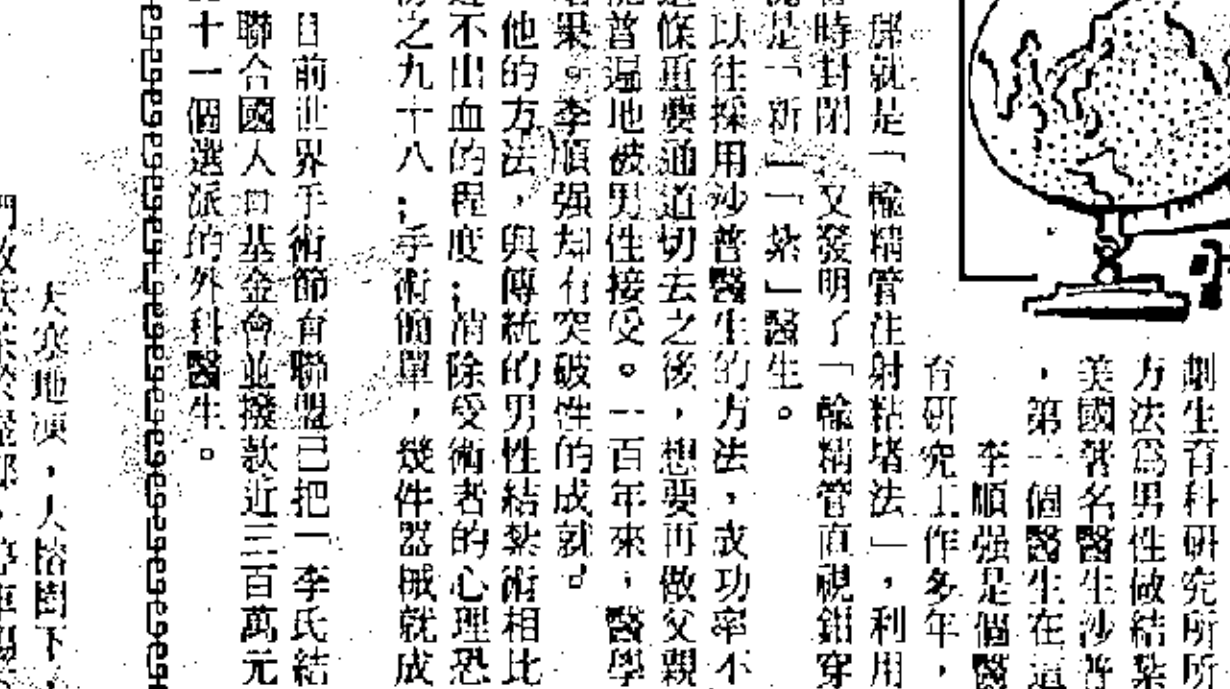 劃生育科研究所所
方法爲男性做結紮
美國著名醫生沙普
，第一個醫生在這
李順强是個醫
育研究工作多年，
就是「輸精管注射粘堵法」，利用
時封閉　又發明了「輸精管直視鉗穿
是「新一一紮」醫生。
以往採用沙普醫生的方法，成功率不
這條重要通道切去之後，想要再做父親
能普遍地被男性接受。一百年來，醫學
結果。李順强却有突破性的成就。
他的方法，與傳統的男性結紮術相比
不出血的程度；消除受術者的心理恐
之九十八；手術簡單，幾件器械就成
目前世界手術節育聯盟已把一李氏結
聯合國人口基金會並撥款近三百萬元
十一個選派的外科醫生。
天寒地凍，大榕樹下，